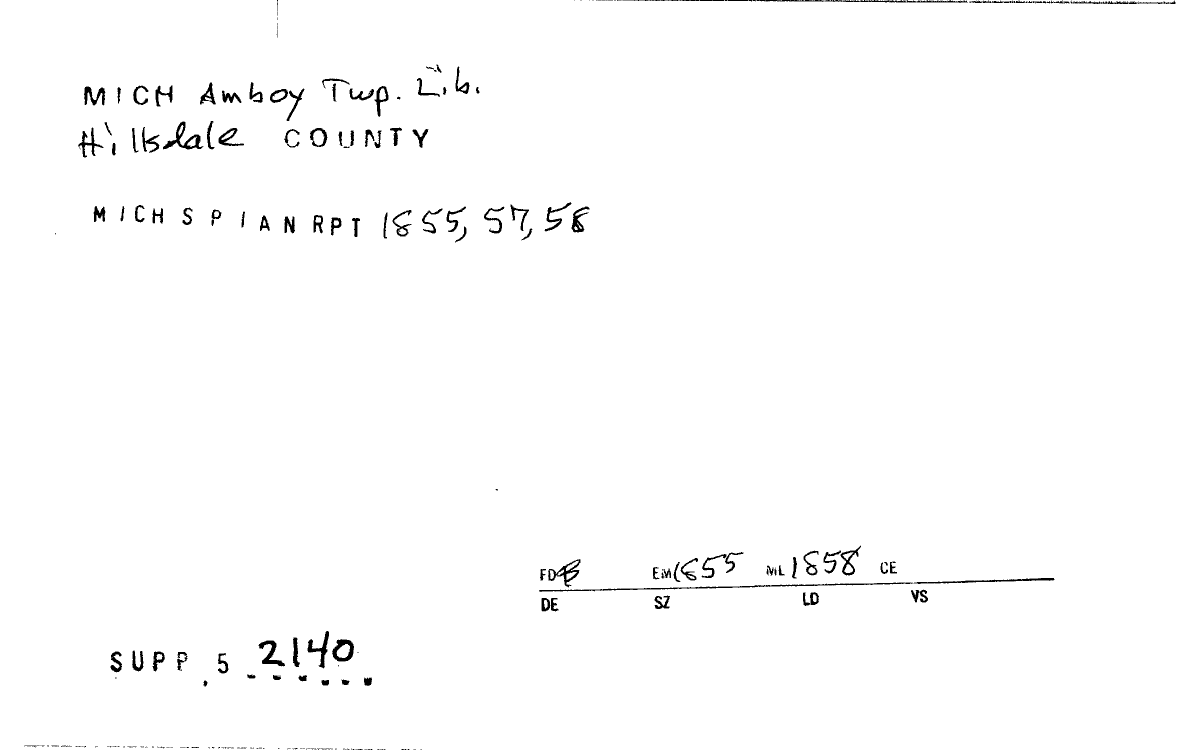 MICH Amboy Twp. Lib.
Hillsdale COUNTY
MICH S P I AN RPT 1855, 57, 58
FD B EM 1855 ML 1858 CE
DE SZ LD VS
SUPP. 5 2140